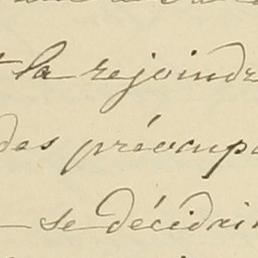 la rejoindre
des préoccup
se décidai